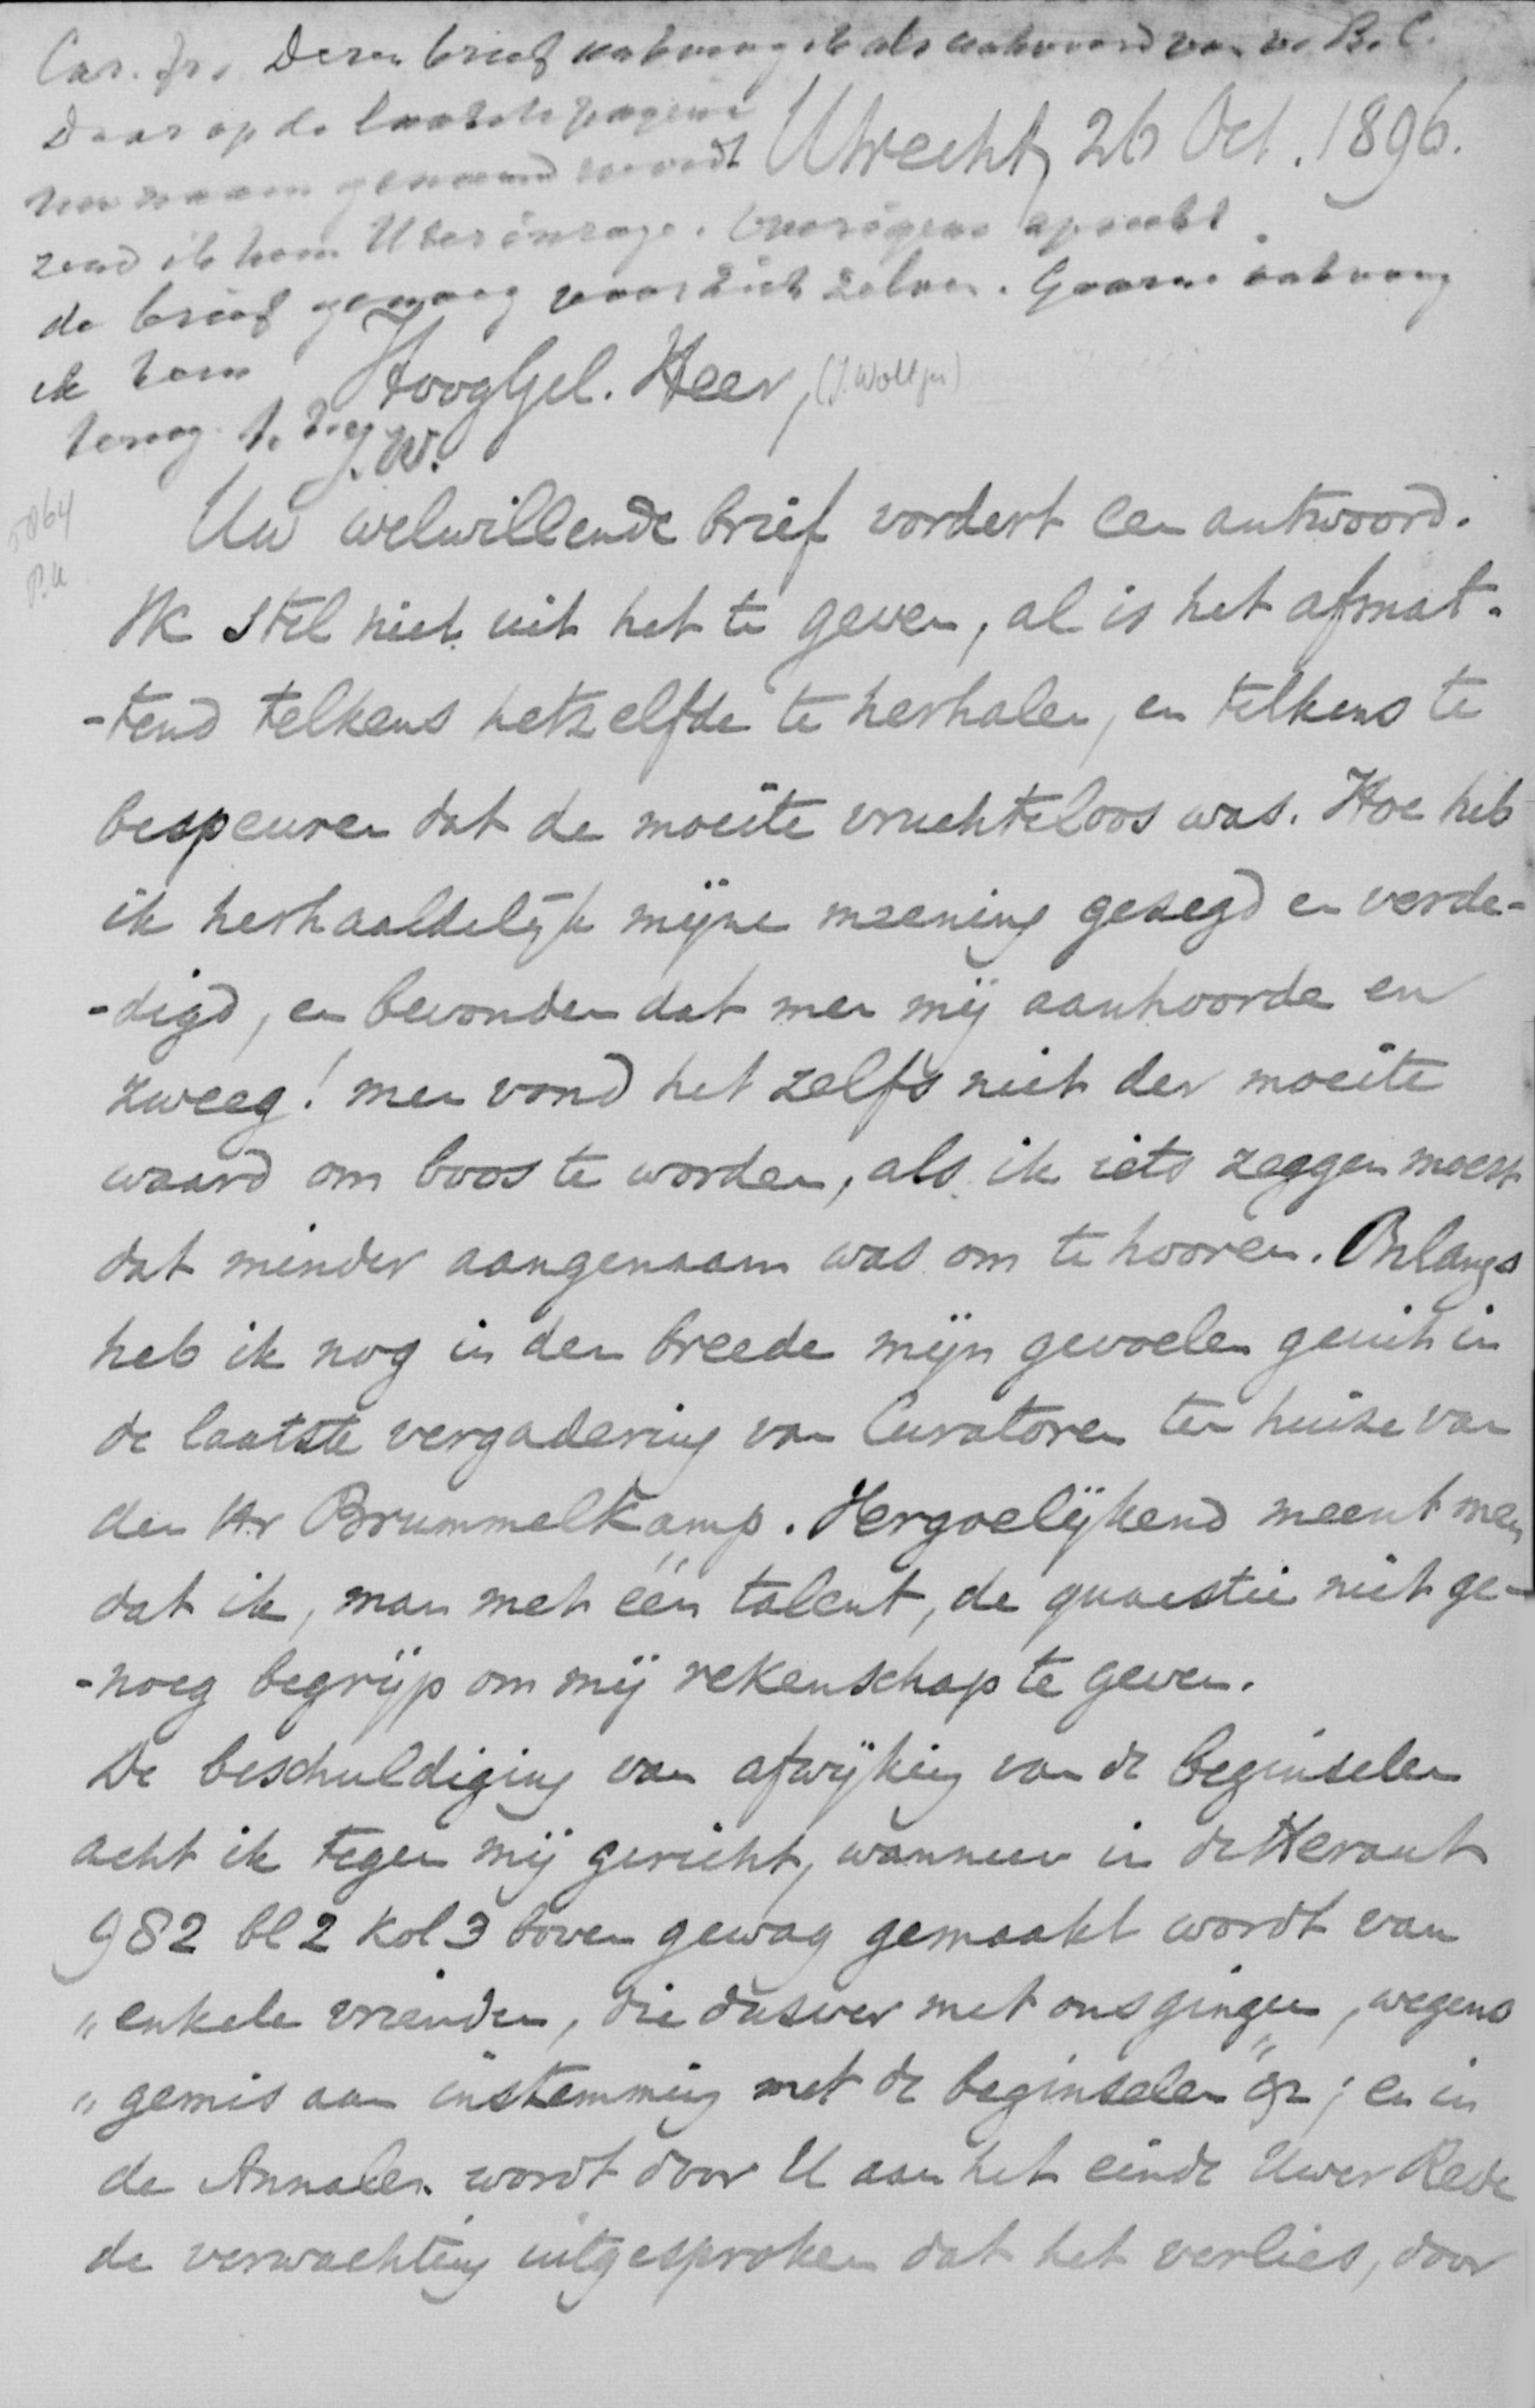 Car. fr. Dezen brief ontvang ik als antwoord van v. B. C.
Daar op de laatste pagina
uw naam genoemd wordt
zend ik hem U ter inzage. Overigens spreekt
de brief genoeg voor zich zelven. Gaarne ontvang
ik hem
terug. t. t.
J. W.
Utrecht, 26 Oct. 1896.
HoogGel. Heer, (J. Woltjer)
5064
Uw welwillende brief vordert een antwoord.
Ik stel niet uit het te geven, al is het afmat-
-tend telkens hetzelfde te herhalen, en telkens te
bespeuren dat de moeite vruchteloos was. Hoe heb
ik herhaaldelijk mijne meening gezegd en verde-
-digd, en bevonden dat men mij aanhoorde en
zweeg! men vond het zelfs niet der moeite
waard om boos te worden, als ik iets zeggen moest
dat minder aangenaam was om te hooren. Onlangs
heb ik nog in den breede mijn gevoelen geuit in
de laatste vergadering van Curatoren ten huize van
den Hr Brummelkamp. Vergoelijkend meent men
dat ik, man met één talent, de quaestie niet ge-
-noeg begrijp om mij rekenschap te geven.
De beschuldiging van afwijking van de beginselen
acht ik tegen mij gericht, wanneer in de Heraut
982 bl 2 kol 3 boven gewag gemaakt wordt van
„enkele vrienden, die dusver met ons gingen, wegens
„gemis aan instemming met de beginselen" ; en in
de Annalen wordt door U aan het einde Uwer Rede
de verwachting uitgesproken dat het verlies, door